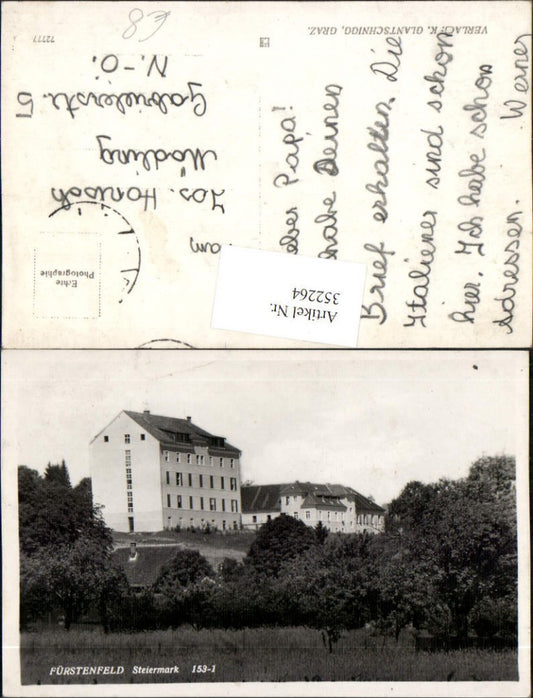 VERLAG: K. GLANTSCHNIGG, GRAZ.
72777
€8
Papa!
habe Deinen
Brief erhalten. Die
Italiener sind schon
hier. Ich habe schon
Adressen. Werner
Jos. Honisch
Mödling
Gabrielerstr. 5
N.-Ö.
Echte
Photographie
Artikel Nr.
352264
FÜRSTENFELD Steiermark 153-1